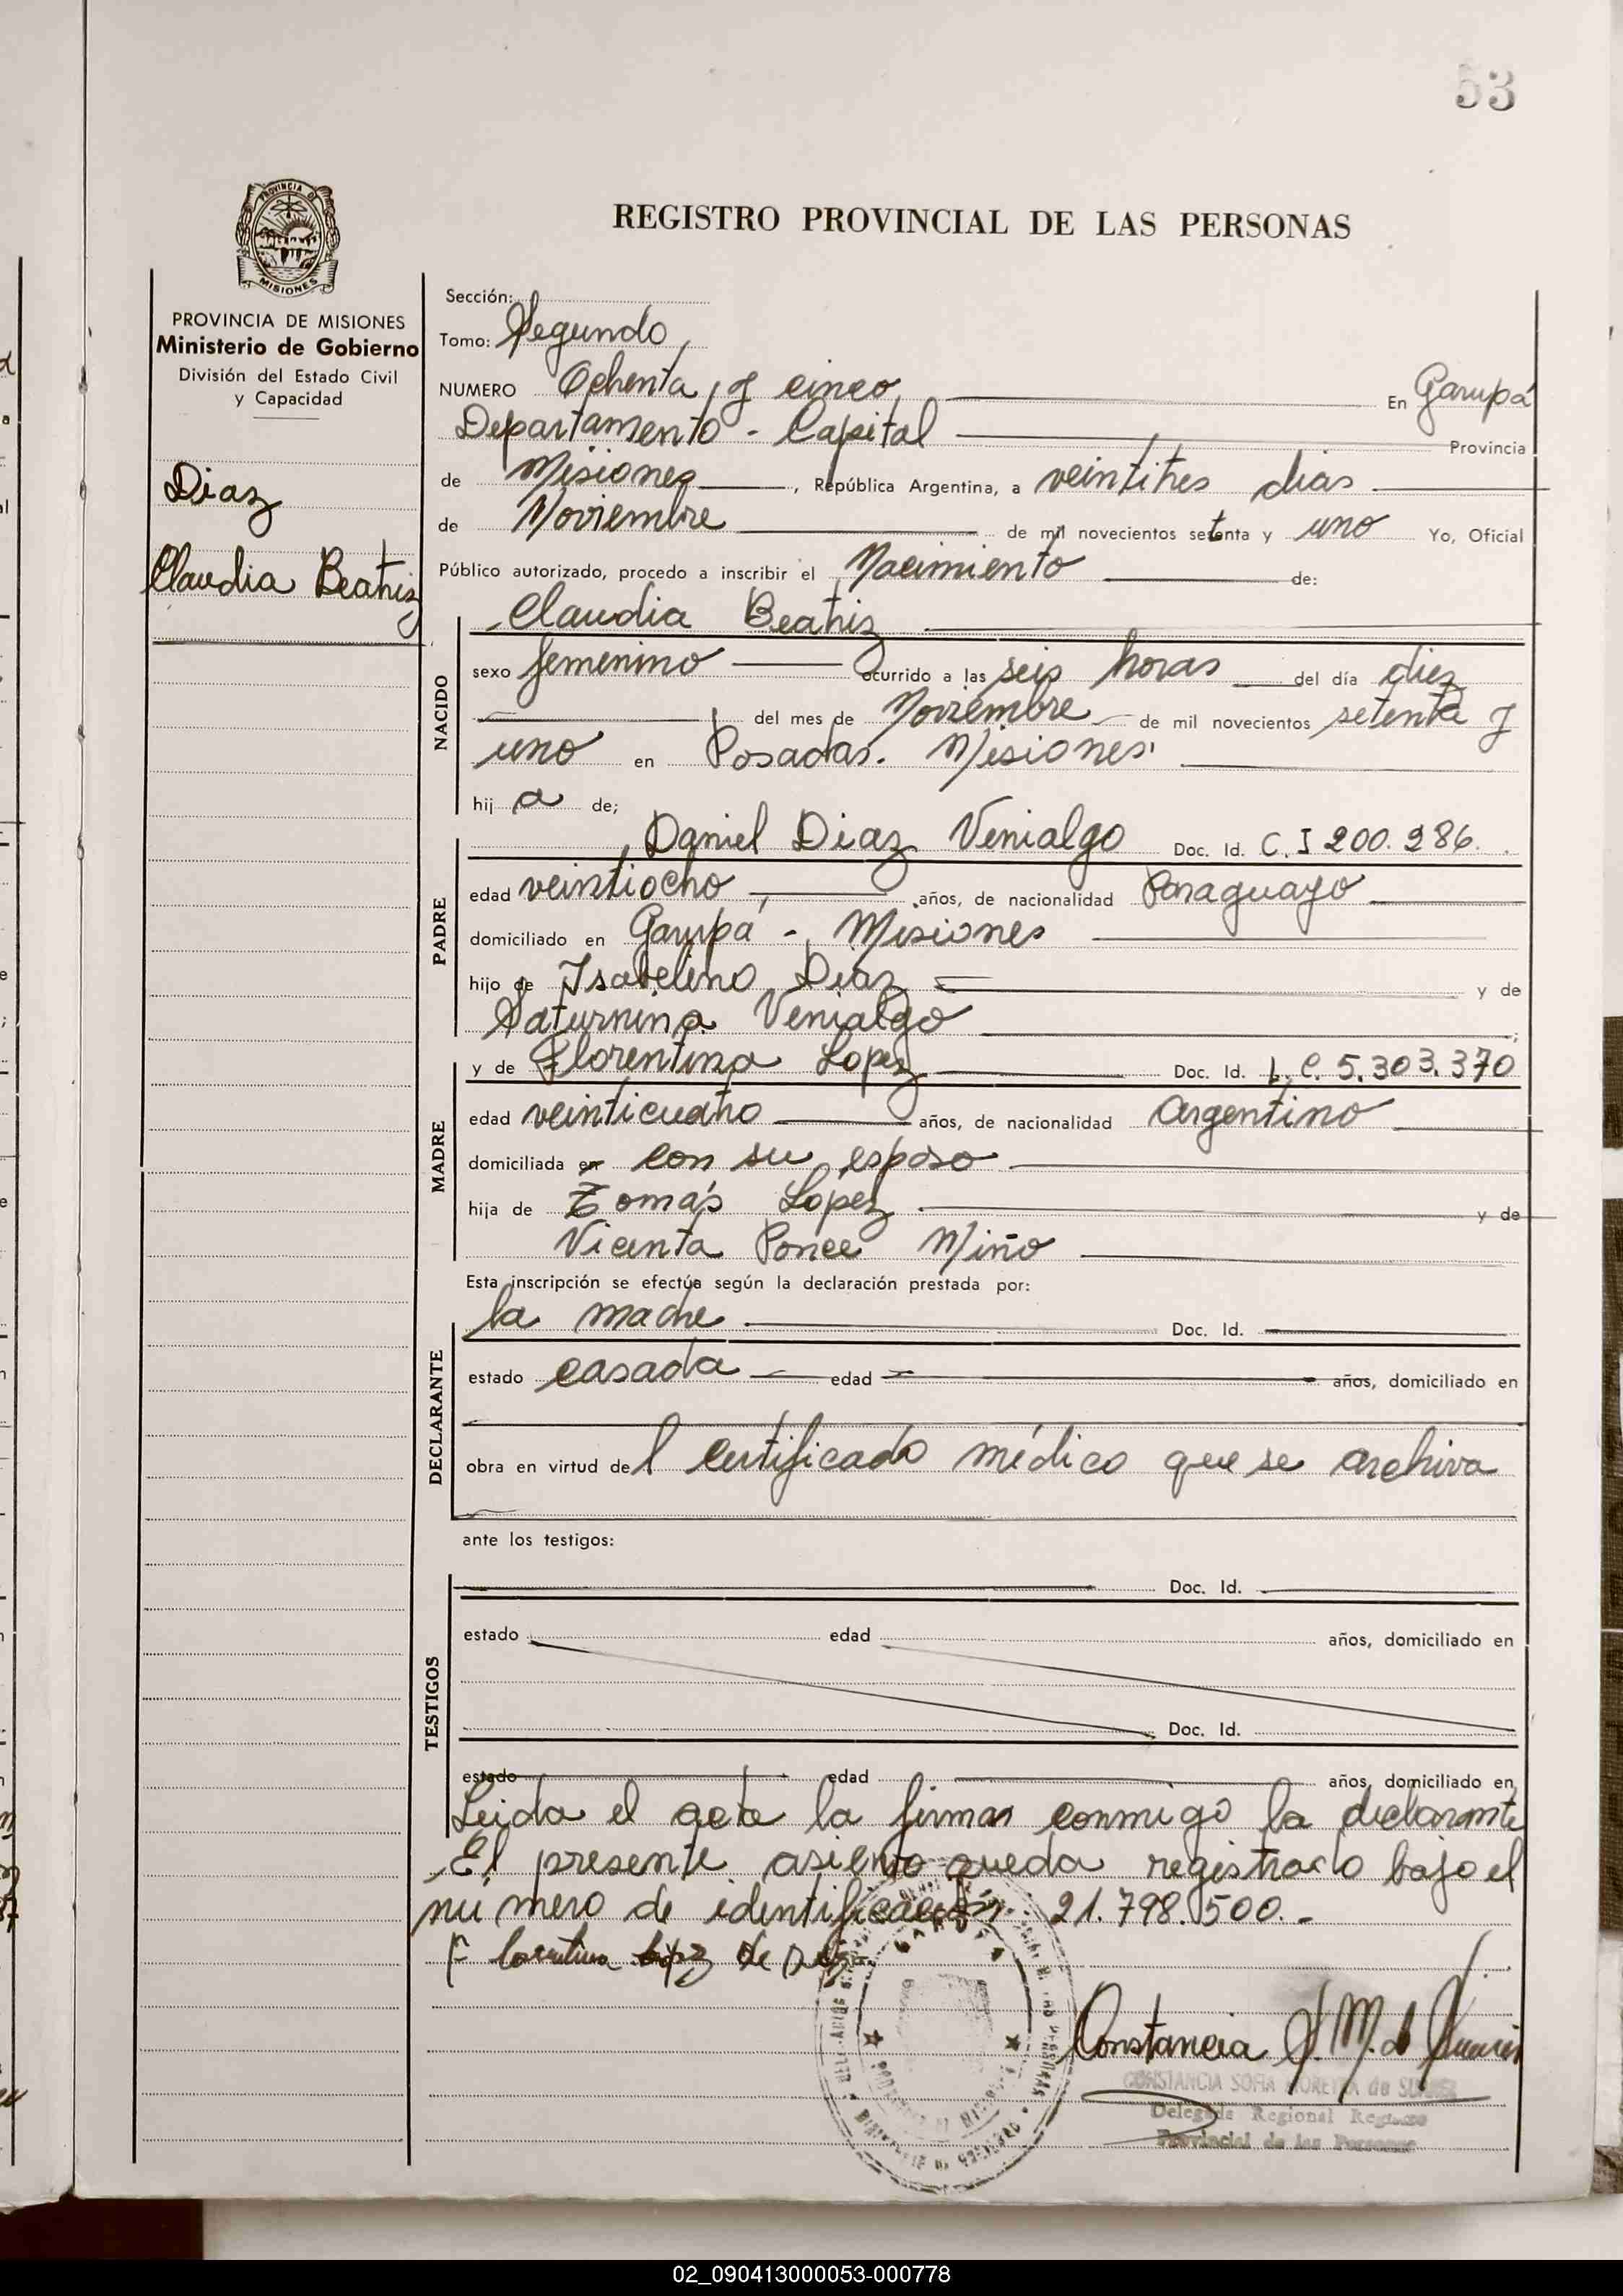 53
PROVINCIA DE MISIONES
PROVINCIA DE MISIONES
Ministerio de Gobierno
División del Estado Civil
y Capacidad
Diaz
Claudia Beatriz
REGISTRO PROVINCIAL DE LAS PERSONAS
Sección:
Tomo: Segundo
NUMERO Ochenta y cinco En Garupá
Departamento - Capital Provincia
de Misiones, República Argentina, a veintitres dias
de Noviembre de mil novecientos setenta y uno Yo, Oficial
Público autorizado, procedo a inscribir el Nacimiento de:
NACIDO
Claudia Beatriz
sexo femenino ocurrido a las seis horas del día diez
del mes de Noviembre de mil novecientos setenta y
uno en Posadas. Misiones
hij a de;
PADRE
Daniel Diaz Venialgo Doc. Id. C. I 200.286.
edad veintiocho años, de nacionalidad Paraguayo
domiciliado en Garupá - Misiones
hijo de Isabelino Diaz y de
Saturnina Venialgo;
MADRE
y de Florentina Lopez Doc. Id. L. C. 5.303.370
edad veinticuatro años, de nacionalidad Argentino
domiciliada en con su esposo
hija de Tomás López y de
Vicenta Ponce Miño
Esta inscripción se efectúa según la declaración prestada por:
DECLARANTE
la madre Doc. Id.
estado casada edad años, domiciliado en
obra en virtud del certificado médico que se archiva
ante los testigos:
TESTIGOS
Doc. Id.
estado edad años, domiciliado en
Doc. Id.
estado edad años, domiciliado en
Leida el acta la firman conmigo la declarante
El presente asiento queda registrado bajo el
número de identificación 21.798.500.-
Florentina Lopez de Diaz
GARUPA
Constancia S. M. d
CONSTANCIA SOFIA MOREYRA de
Delegada Regional Registro
Provincial de las Personas
02_090413000053-000778